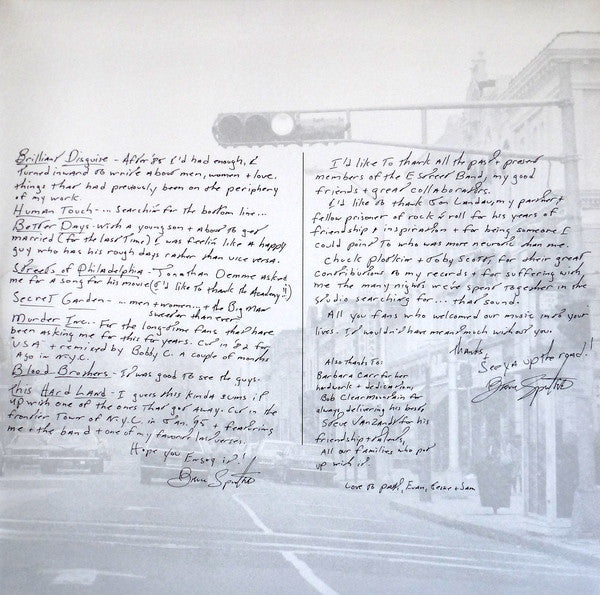 Brilliant Disguise - After '85 I'd had enough, I
turned inward to write about men, women + love.
things that had previously been on the periphery
of my work.
Human Touch -... Searchin' for the bottom line...
Better Days - with a young son + about to get
married (for the last time) I was feelin' like a happy
guy who has his rough days rather than vice versa.
Streets of Philadelphia - Jonathan Demme asked
me for a song for his movie (I'd like to thank the Academy!!)
Secret Garden - ... men + women... + the Big Man
sweeter than ever
Murder Inc. - For the long-time fans that have
been asking me for this for years. Cut in '82 for
"USA" + remixed by Bobby C. a couple of months
ago in N.Y.C.
Blood Brothers - It was good to see the guys.
This Hard Land - I guess this kinda sums it
up with one of the ones that got away. Cut in the
frontier town of N.Y.C. in Jan. '95 + featuring
me + the band + one of my favorite last verses.
Hope you Enjoy it!
Bruce Springsteen
I'd like to thank all the past + present
members of the E Street Band, my good
friends + great collaborators.
I'd like to thank Jon Landau, my partner +
fellow prisoner of rock & roll for his years of
friendship + inspiration + for being someone I
could point to who was more neurotic than me.
Chuck Plotkin + Toby Scott, for their great
contributions to my records + for suffering with
me the many nights we've spent together in the
studio searching for... that sound.
All you fans who welcomed our music into your
lives. It wouldn't have meant much without you.
Thanks,
See ya up the road!
Bruce Springsteen
Also thanks to:
Barbara Carr for her
hard work + dedication,
Bob Clearmountain for
always delivering his best,
Steve Van Zandt for his
friendship + talents,
All our families who put
up with it.
Love to Patti, Evan, Jessie + Sam